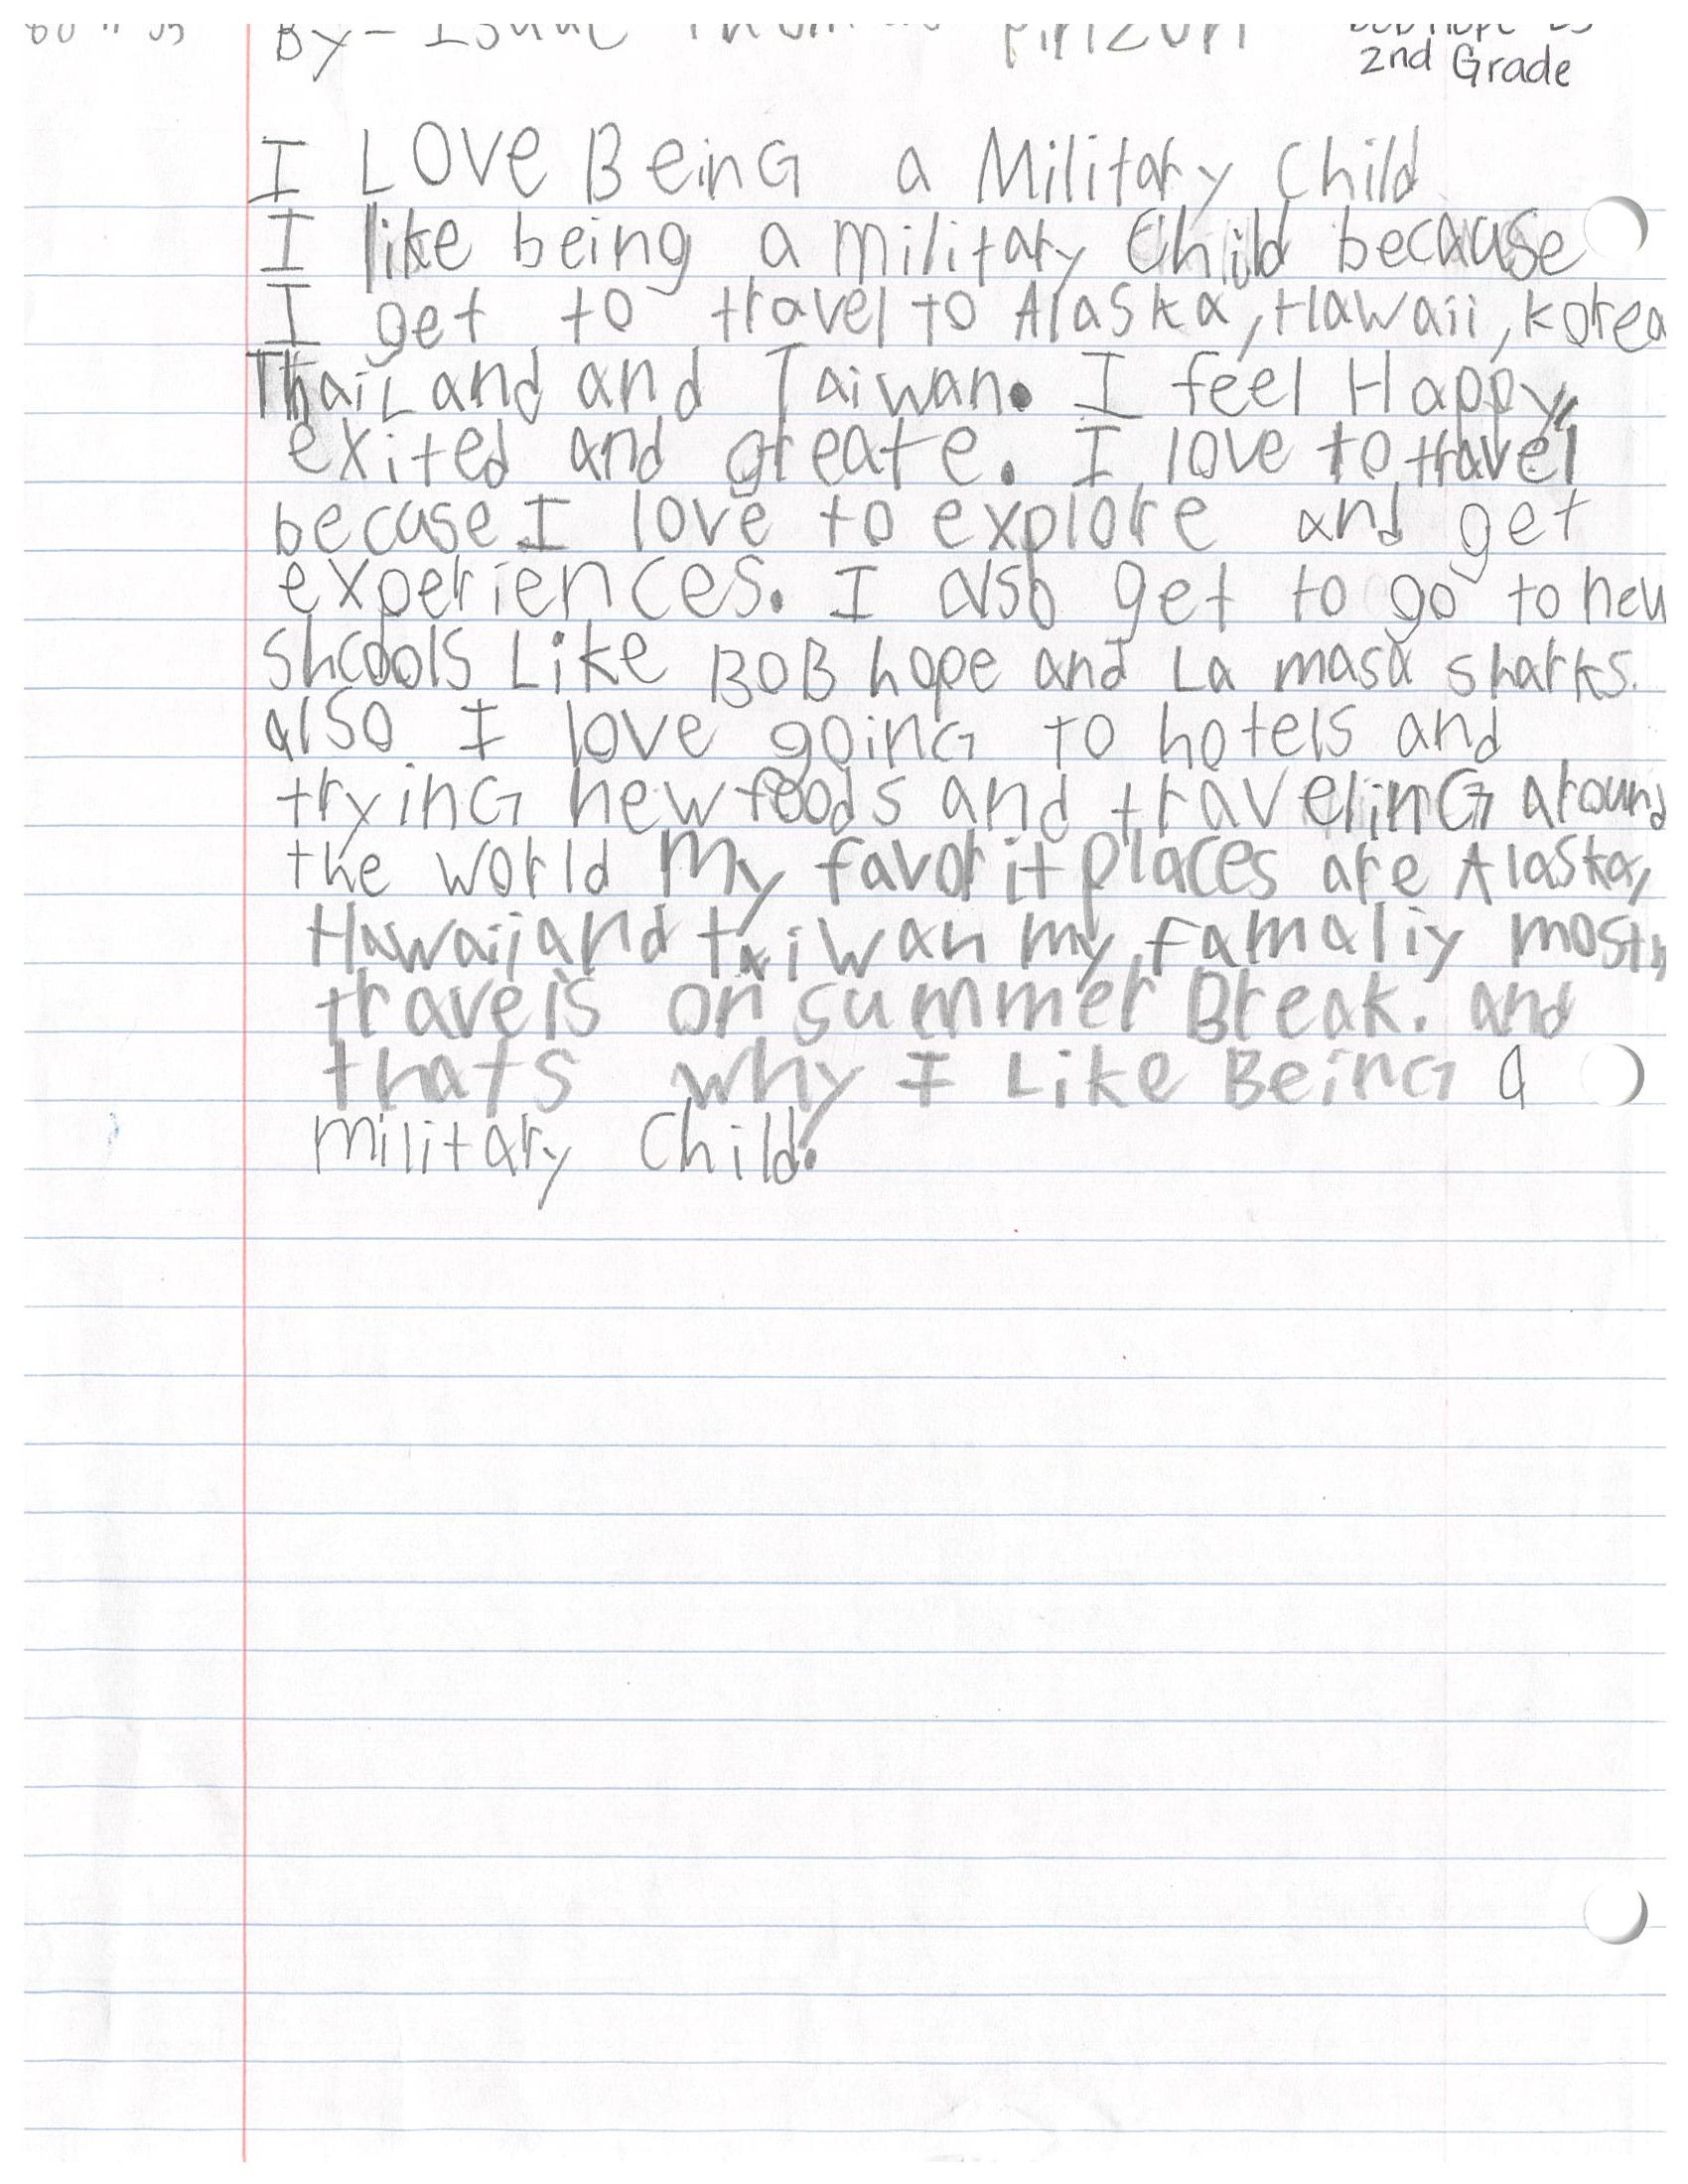 By- Isaac Pinzon
2nd Grade
I LOVE BeinG a Military Child
I like being a military Child because
I get to travel to Alaska, Hawaii, korea
ThaiLand and Taiwan. I feel Happy,
exited and greate. I love to travel
becuse I love to explore and get
experiences. I also get to go to new
shcools Like BOB hope and La masa sharks.
also I love going To hotels and
tryinG new foods and travelinG around
the world My favorit places are Alaska,
Hawaii and taiwan my famaliy mostly
travels on summer Break. and
thats why I Like BeinG a
military Child.